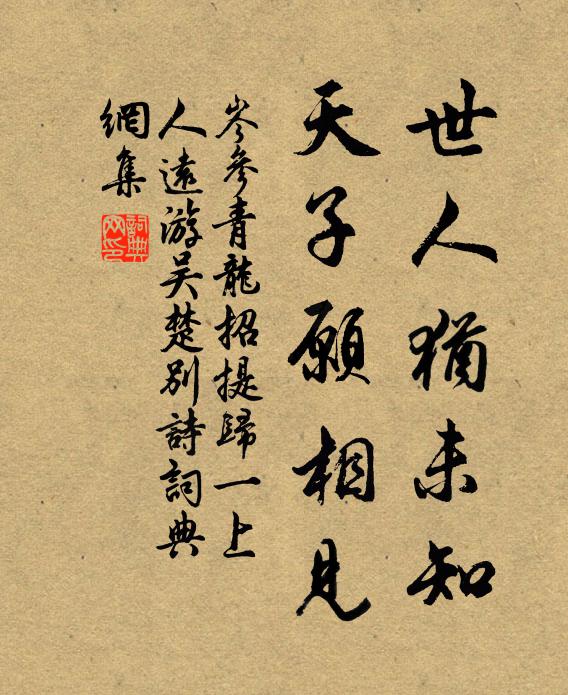 世人猶未知
天子願相見
岑參青龍招提歸一上
人遠游吳楚別詩詞典
網集
詞典
网印